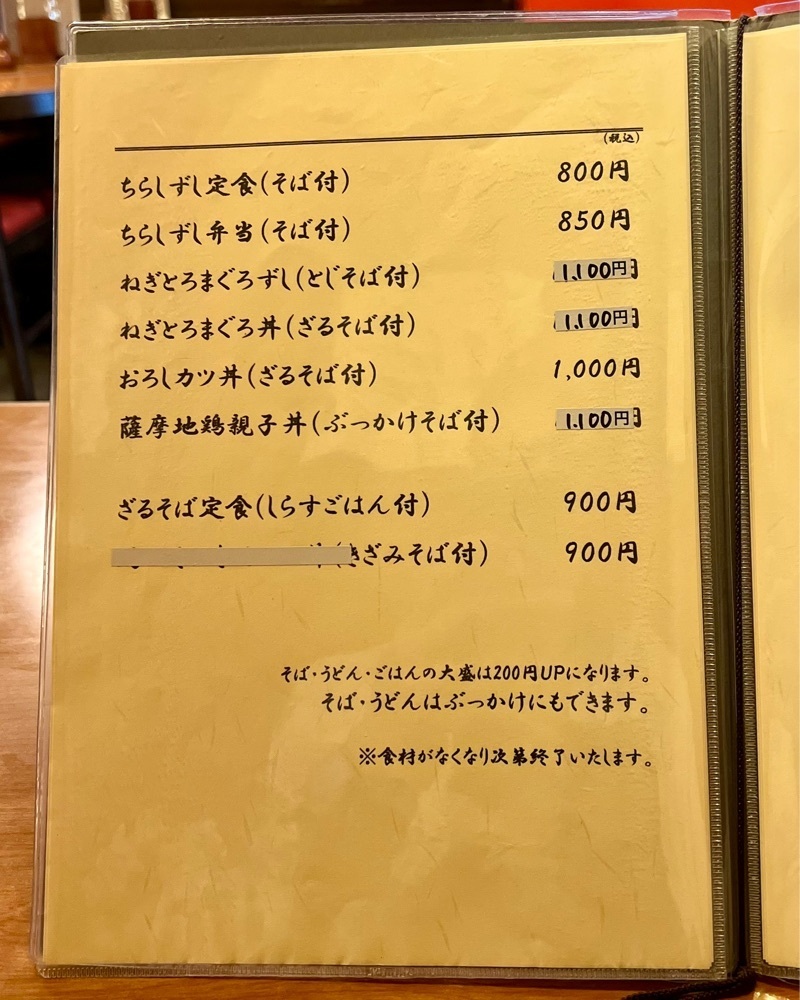 (税込)
ちらしずし定食(そば付) 800円
ちらしずし弁当(そば付) 850円
ねぎとろまぐろずし(とじそば付) 1,100円
ねぎとろまぐろ丼(ざるそば付) 1,100円
おろしカツ丼(ざるそば付) 1,000円
薩摩地鶏親子丼(ぶっかけそば付) 1,100円
ざるそば定食(しらすごはん付) 900円
(きざみそば付) 900円
そば・うどん・ごはんの大盛は200円UPになります。
そば・うどんはぶっかけにもできます。
※食材がなくなり次第終了いたします。